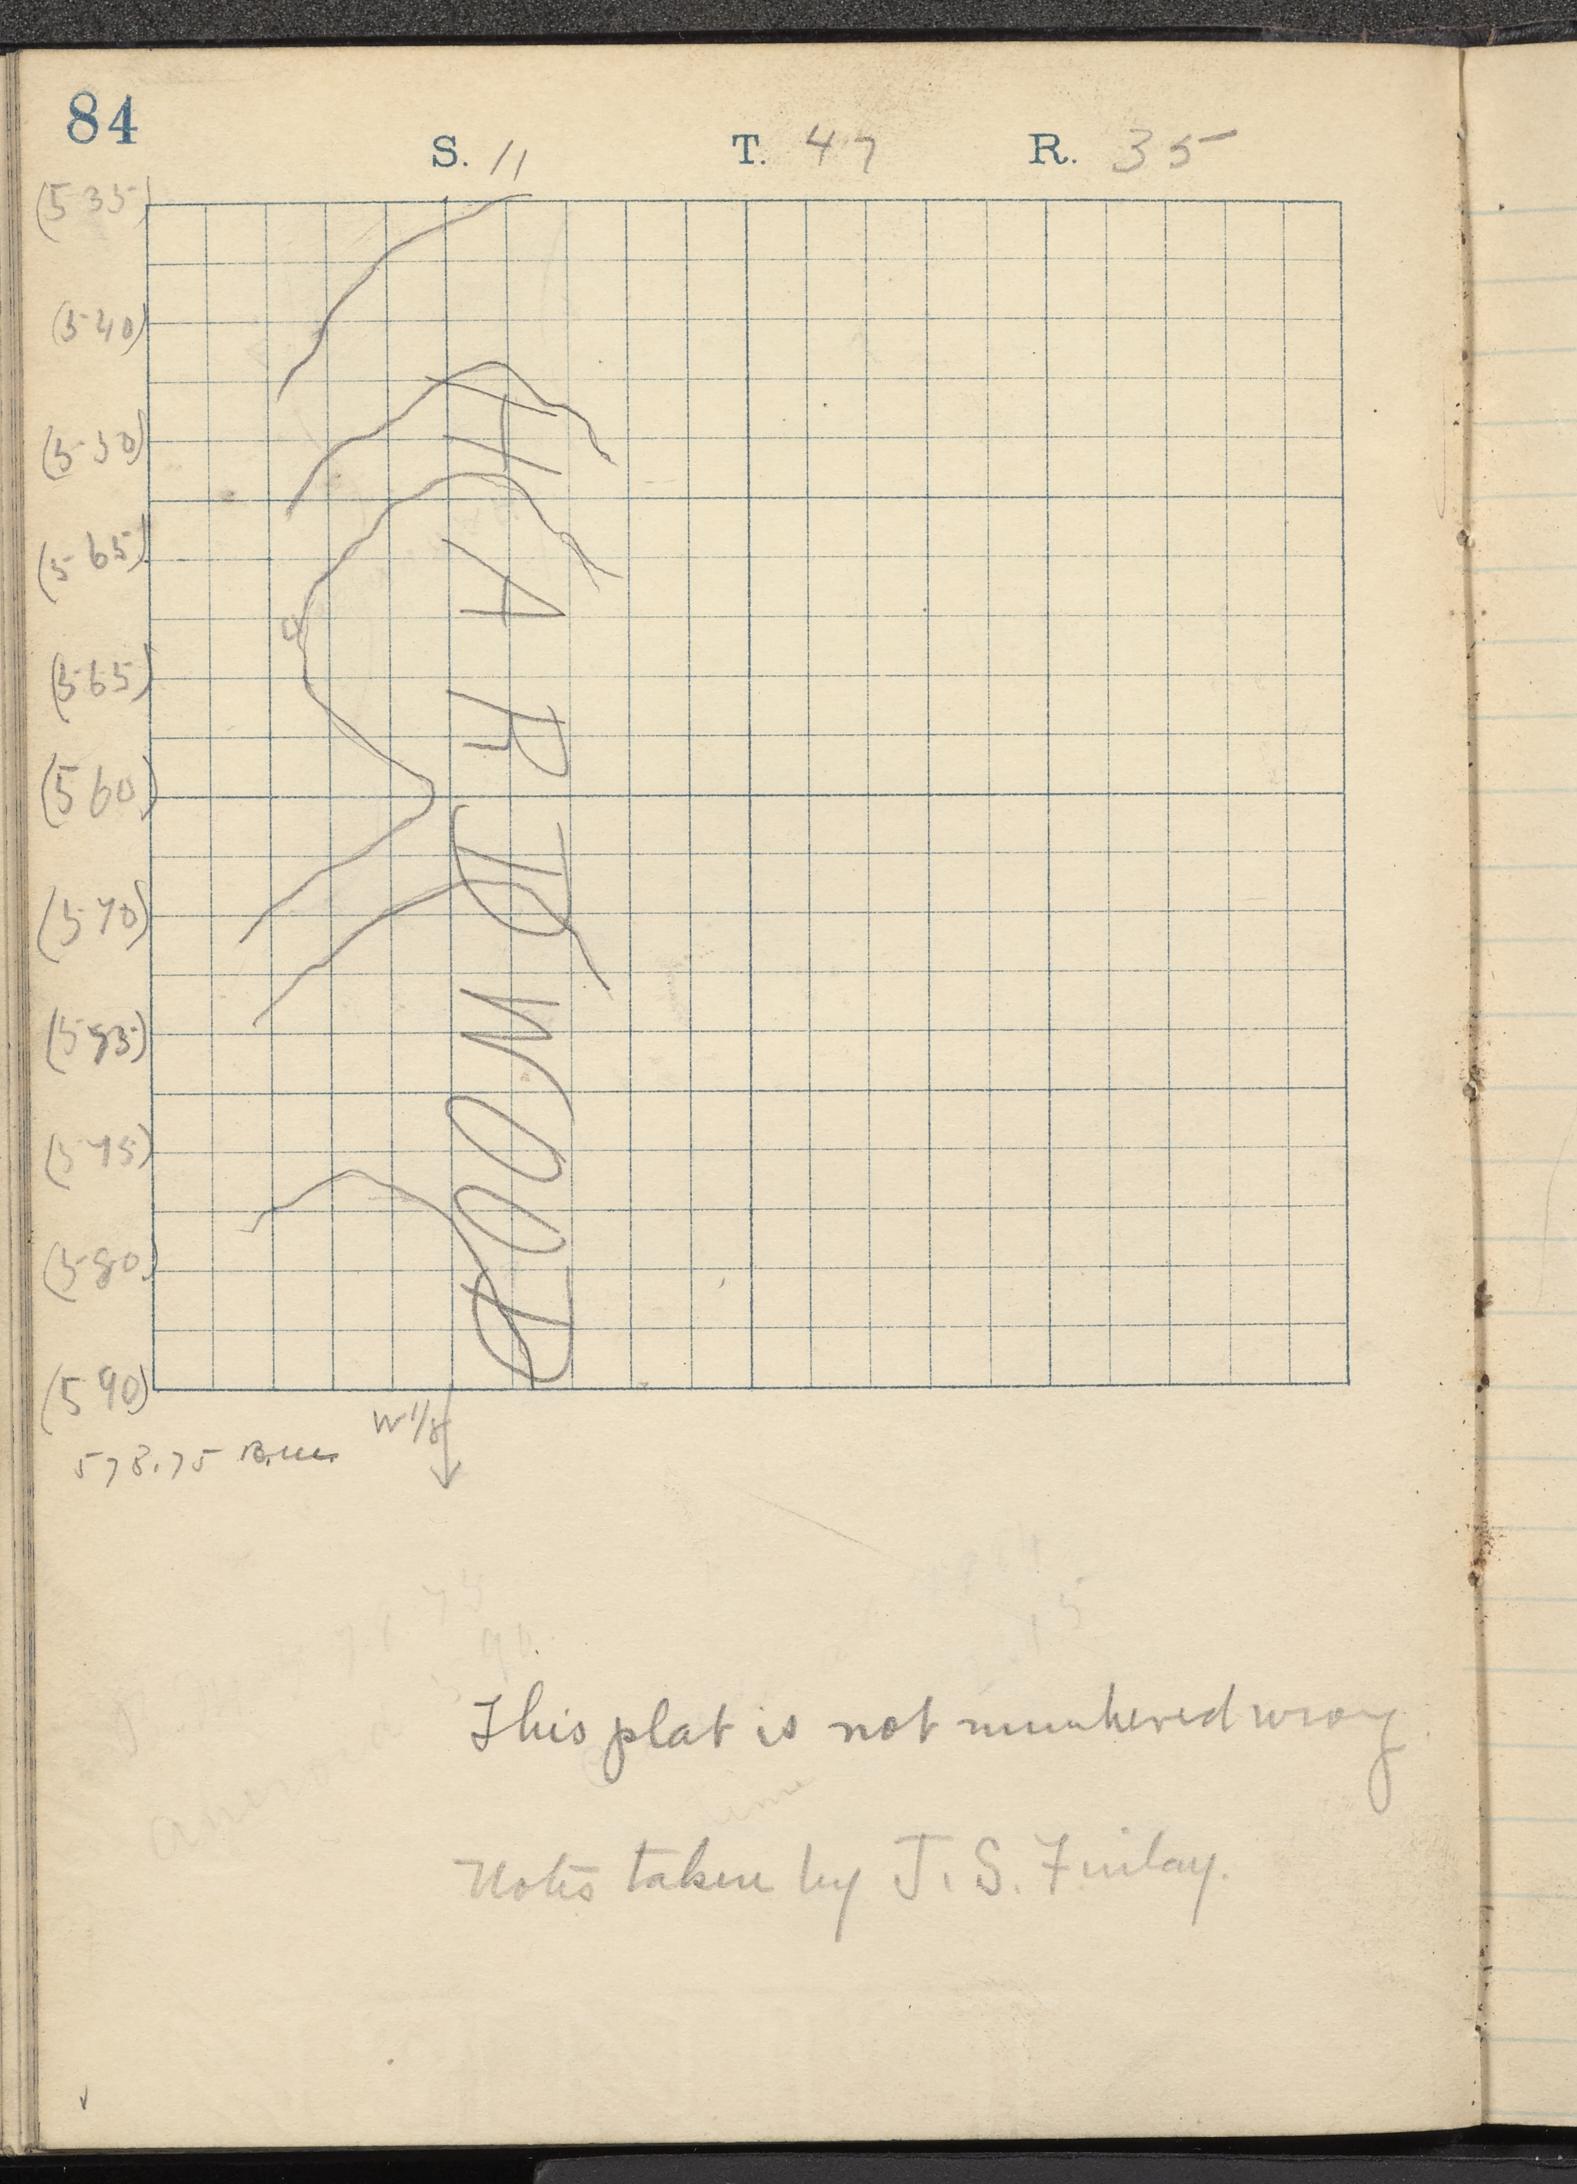 84
S. 11 T. 47 R. 35
(535)
(540)
(550)
(565)
(565)
(560)
(570)
(575)
(580)
(590)
W 1/8
578.75
HARDWOOD
This plat is not numbered wrong
Notes taken by J. S. Finlay.